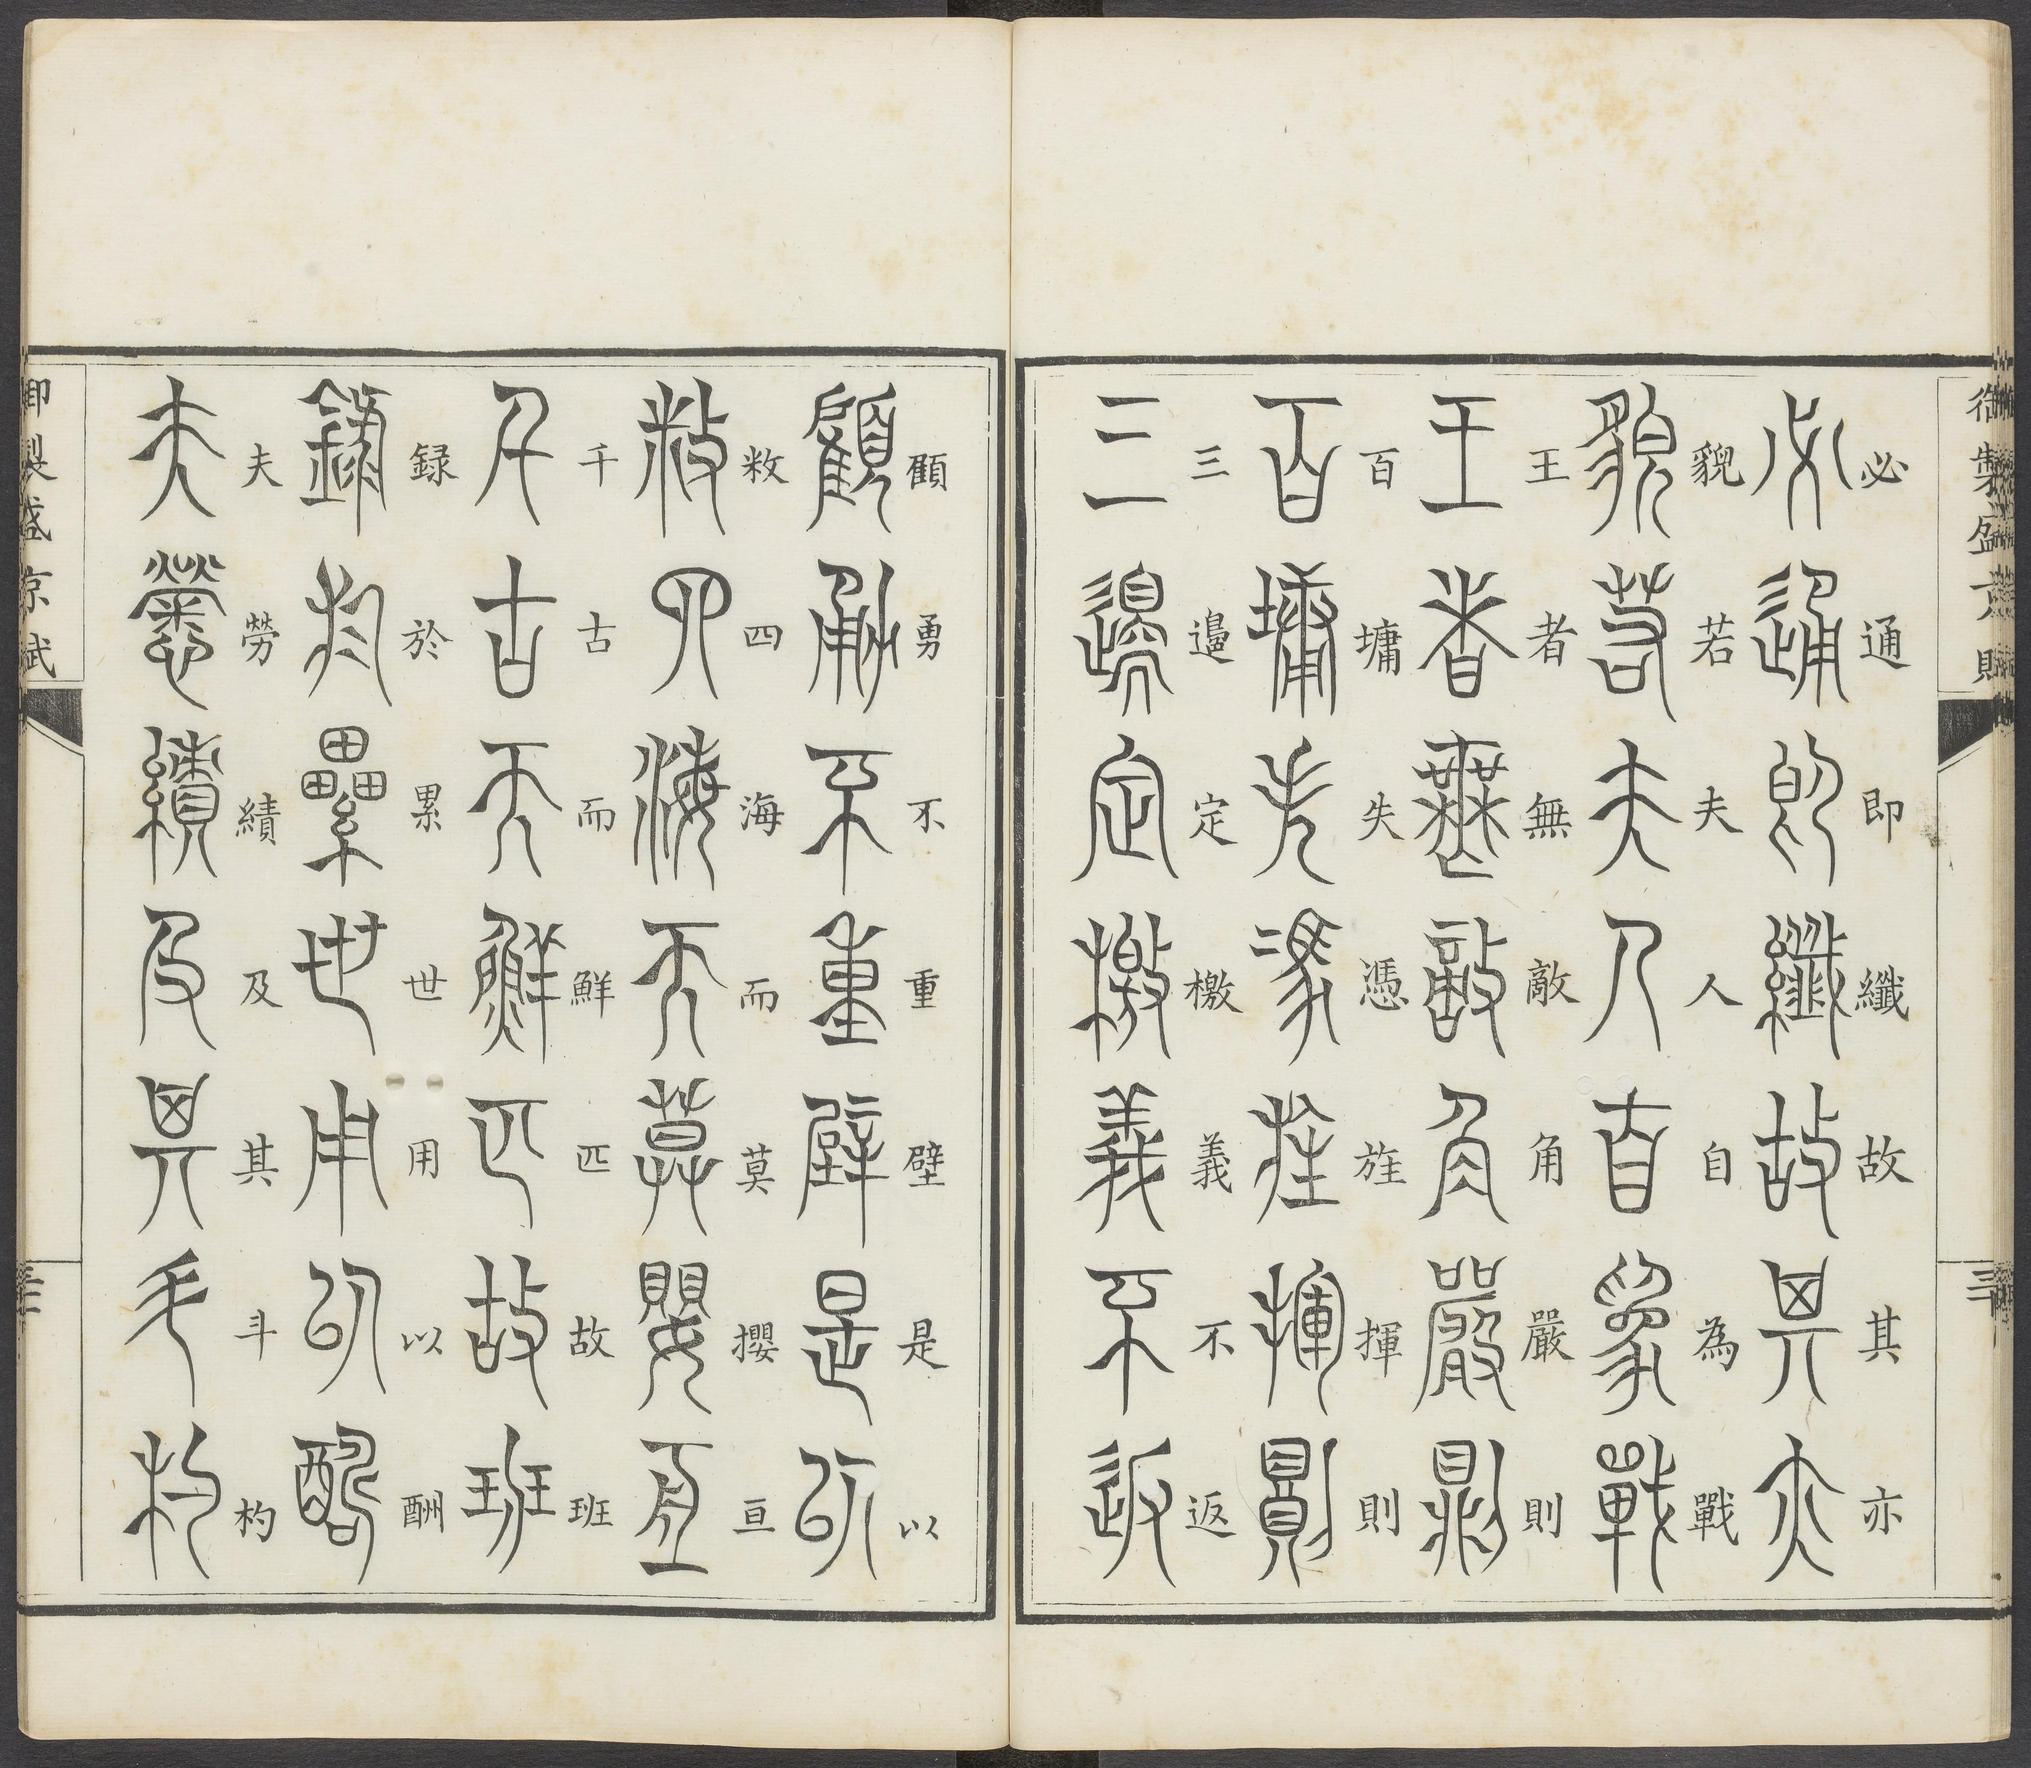 御製盛京賦
必通即纖故其亦
貔若夫人自為戰
王者無敵角嚴則
百墉失憑旌揮則
三邊定檄義不返
顧勇不重壁是以
敉四海而莫攖亘
千古而鮮匹故班
録於累世用以酬
夫勞績及其斗杓
御製盛京賦